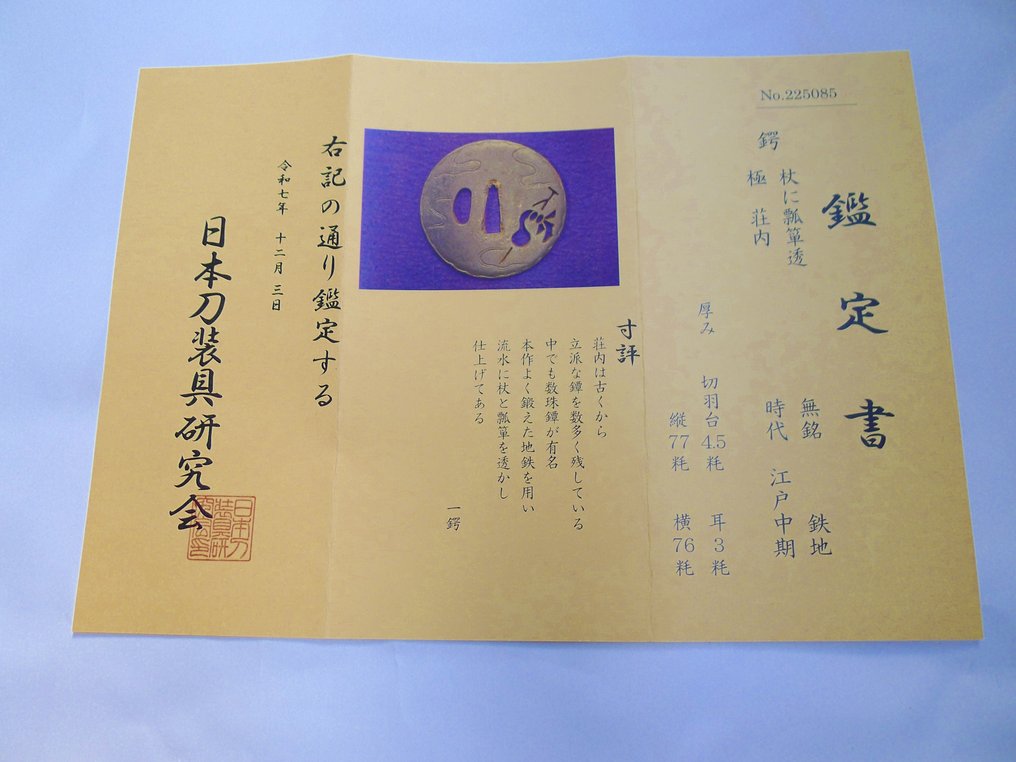 No.225085
鑑定書
無銘 鉄地
杖に瓢箪透
時代 江戸中期
鍔
極 荘内
厚み 切羽台 4.5 粍 耳 3 粍
縦 77 粍 横 76 粍
寸評
荘内は古くから
立派な鐔を数多く残している
中でも数珠鐔が有名
本作よく鍛えた地鉄を用い
流水に杖と瓢箪を透かし
仕上げてある
一鍔
右記の通り鑑定する
令和七年 十二月 三日
日本刀装具研究会
日本刀
装具研
究会印